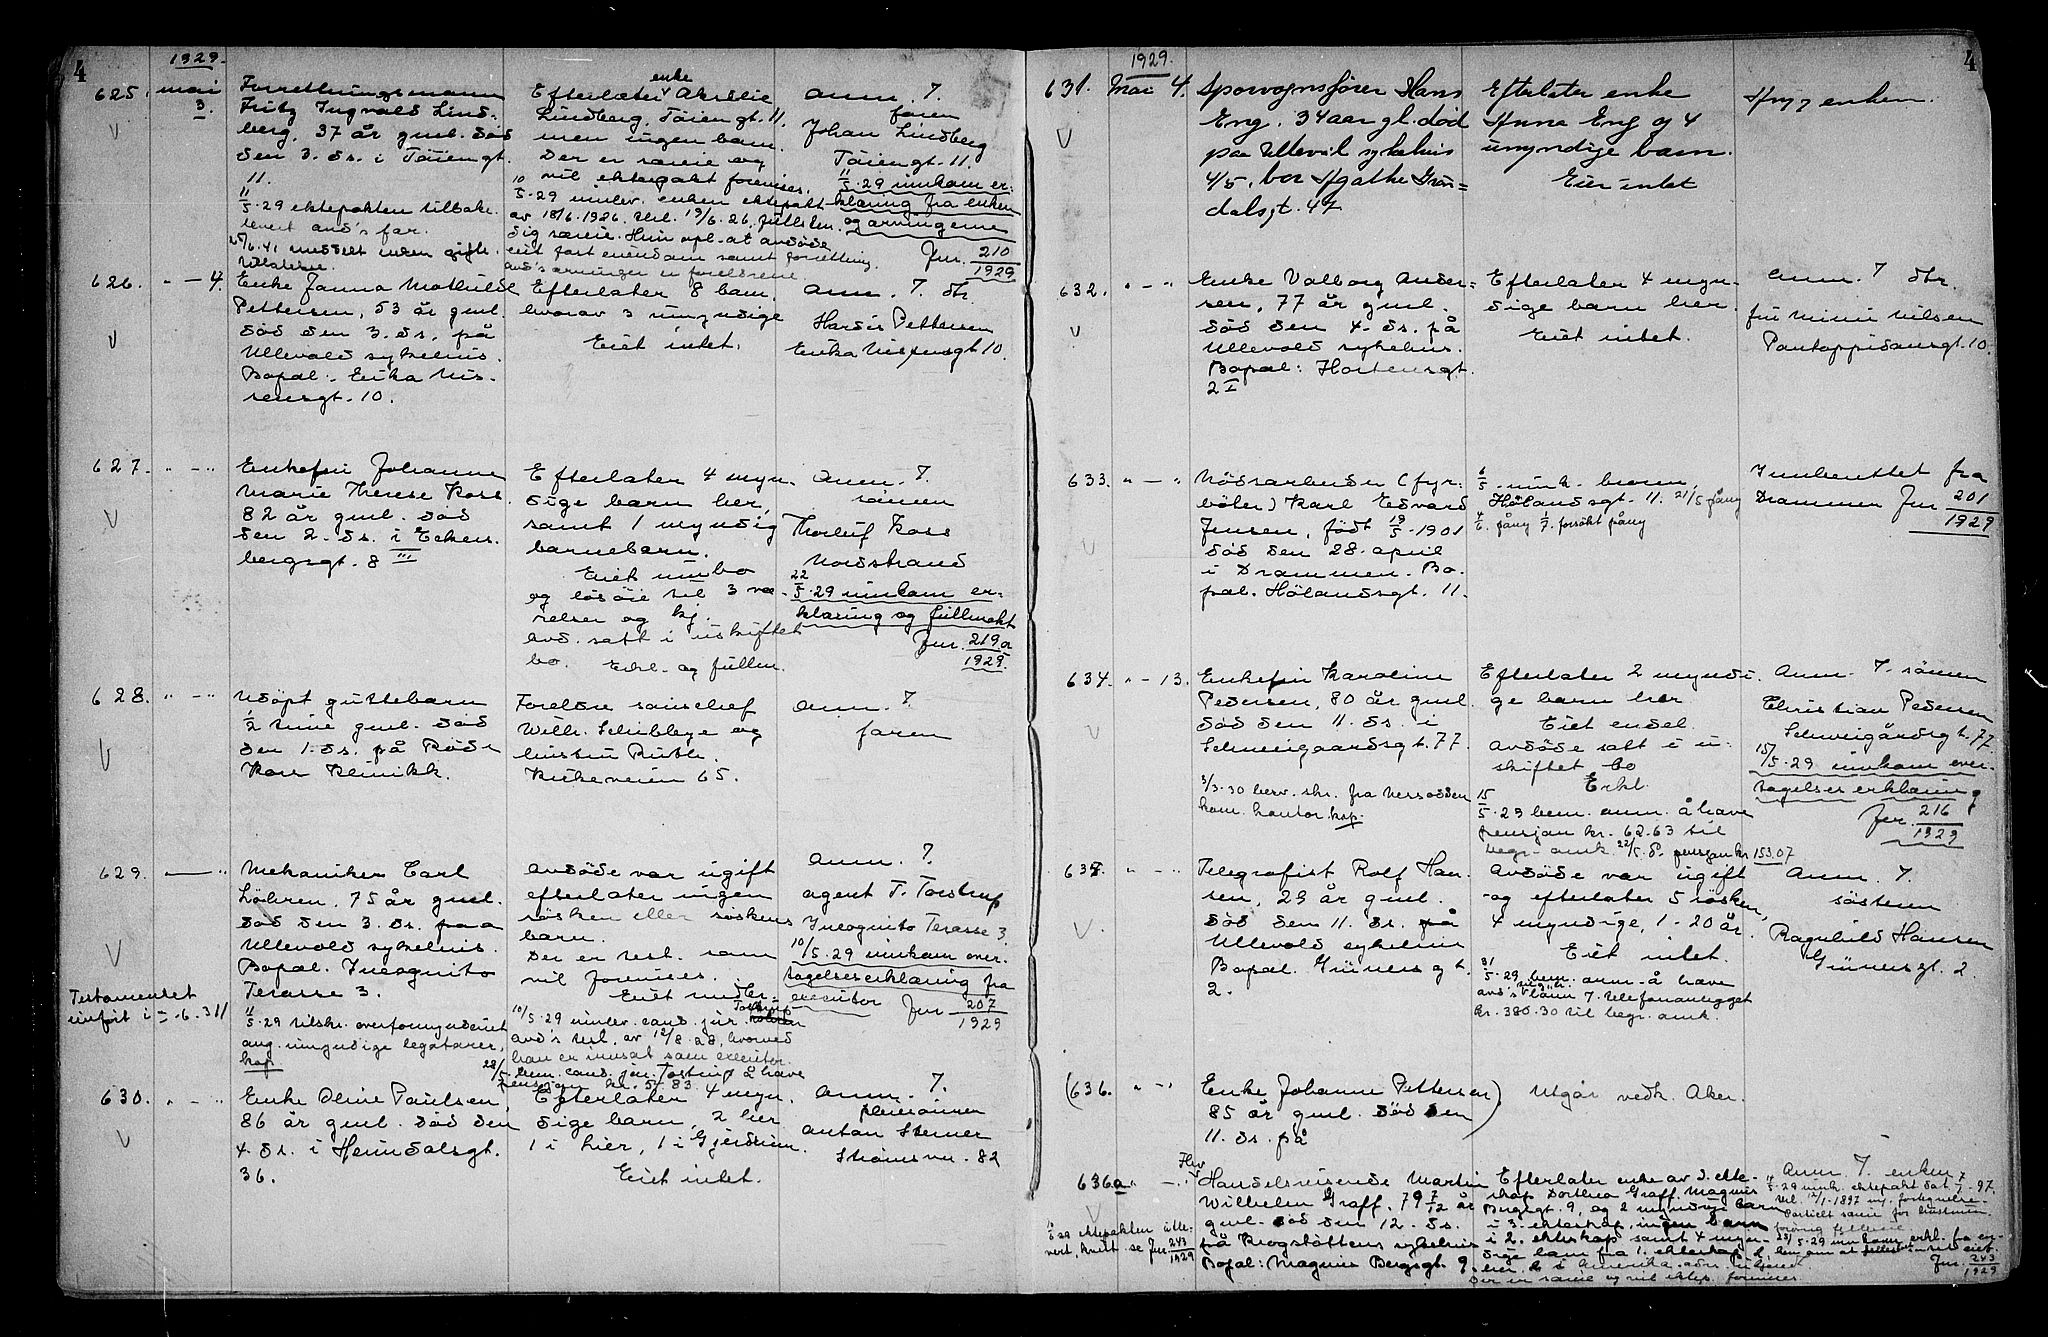 4
1929.
625. mai 3.
Forretningsmann
Fritz Ingvald Lind-
berg, 37 år gml. død
den 3. ds. i Töiengt.
11.
11/5.29 ektepakten tilbake-
levert avd's far.
enke
Efterlater
Lindberg, Töiengt. 11.
men ingen barn.
Der er særeie og
vil ektepakt forevises.
10/5.29 innlev. enken ektepakt
av 18/6.1926, tgl. 19/6.26, fullsten-
dig særeie. Hun opl. at avdøde
eiet fast eiendom samt forretning.
avd's arvinger er foreldrene.
Anm. 7.
faren
Johan Lindberg
Töiengt. 11.
11/5.29 innkom er-
klæring fra enken
og arvingene
Jnr. 210/1929
626. " — 4.
Enke Janna Mathilde
Pettersen, 53 år gml.
död den 3. ds. på
Ullevold sykehus.
Bopæl: Erika Nis-
sensgt. 10.
Efterlater 8 barn,
hvorav 3 umyndige
Eiet intet.
Anm. 7. dtr.
Hardis Pettersen
Erika Nissensgt 10.
627. " — "
Enkefru Johanne
Marie Therese Koss
82 år gml. död
den 2. ds. i Eckers-
bergsgt. 8 III
Efterlater 4 myn-
dige barn her,
samt 1 myndig
barnebarn.
Eiet innbo
og lösöre til 3 væ-
relser og kj.
Avd. satt i uskiftet
bo. Erkl. og fullm.
Anm. 7.
sönnen
Thorluf Koss
Nordstrand
22/5.29 innkom er-
klæring og fullmakt
Jnr. 219a/1929.
628. " — "
Udöpt guttebarn
1/2 time gml. död
den 1. ds. på Röde
Kors Klinikk.
Foreldre
Willi. Schibbye og
hustru Ruth.
Kirkeveien 65.
Anm. 7.
faren
629. — "
Mekaniker Carl
Löhren, 75 år gml.
död den 3. ds. paa
Ullevold sykehus.
Bopæl. Incognito
Terasse 3.
Testamentet
innfört i
11/5.29 tilskr. overformynderiet
ang. umyndige legatarer,
kop.
Avdöde var ugift
efterlater ingen
sösken eller söskens
barn.
Der er test. som
vil forevises.
10/5.29 innlev. cand. jur. Torstrup
avd's test. av 12/8.28, hvorved
han er innsat som executor.
28/5 bem. cand. jur. Torstrup å have
pensjon kr. 57.83.
Anm. 7.
agent T. Torstrup
Incognito Terasse 3.
10/5.29 innkom over-
tagelseserklæring fra
executor Jnr 207/1929
630. " — "
Enke Oline Paulsen,
86 år gml. död den
4. ds. i Heimdalsgt.
36.
Efterlater 4 myn-
dige barn, 2 her
1 i Lier, 1 i Gjerdrum.
Eiet intet.
Anm. 7.
pleiesönnen
Anton Sterner
Strömsvn. 82
4
1929.
631. Mai 4.
Sporvognsfører Hans
Eng, 34 aar gl. død
paa Ullevål sykehus
4/5, bor Agathe Grøn-
dalsgt. 47
Efterlater enke
Anna Eng og 4
umyndige barn.
Eier intet
Any enken.
632. " — "
Enke Valborg Ander-
sen, 77 år gml.
död den 4. ds. på
Ullevold sykehus.
Bopæl: Hortensgt.
2 I
Efterlater 4 myn-
dige barn her
Eiet intet.
Anm. 7 dtr.
fru Mimi Nilsen
Pontoppidansgt. 10.
633. " — "
Nödsarbeider (fyr-
böter) Karl Edvard
Jensen, födt 19/5-1901
död den 28. april
i Drammen. Bo-
pæl. Hölandsgt. 11.
6/5. innk. broren,
Hölandsgt. 11. 21/5 pång
4/6. pång 7/7. forsökt pång
Innberettet fra
Drammen Jnr 201/1929
634. " — 13.
Enkefru Karoline
Pedersen, 80 år gml.
död den 11. ds. i
Schweigaardsgt. 77.
3/3.30 besv. skr. fra Nesodden
kom. kontor. kop.
Efterlater 2 myndi-
ge barn her
Eiet endel
Avdöde satt i u-
skiftet bo
Erkl.
15/5.29 bem. anm. å have
pensjon kr. 62.63 til
begr. omk. 22/5. d. pensjon kr 153.07
Anm. 7. sönnen
Christian Pedersen
Schweigårdsgt. 77.
15/5.29 innkom over-
tagelseserklæring
Jnr. 216/1929
635. " — "
Telegrafist Rolf Han-
sen, 29 år gml.
död den 11. ds. på
Ullevold sykehus
Bopæl. Grünersgt.
2.
Avdöde var ugift
og efterlater 5 sösken,
4 myndige, 1 - 20 år.
Eiet intet.
31/5.29 bem. anm. å have
avd's lönn 7. telefonanlegget
kr. 380.30 til begr. omk.
Anm. 7.
sösteren
Ragnhild Hansen
Grünersgt. 2.
(636. " — "
Enke Johanne Pettersen)
85 år gml. död den
11. ds. på
Utgår vedk. Aker.
636a " — "
Handelsreisende Martin
Wilhelm Graff. 79 7/12 år
gml. död den 12. ds.
på Krogstöttens sykehus
Bopæl: Magnus Bergsgt 9.
ektepakten utle-
vert, kvitt. se Jnr 243/1929
Efterlater enke av 3. ekte-
skap Dorthea Graff. Magnus
Bergsgt. 9, og 2 myndige barn
i 3. ekteskap, ingen barn
i 2. ekteskap samt 4 myn-
dige barn fra 1. ekteskap,
Der er særeie og vil ektep. forevises
Anm 7. enken
5.29 innk. ektepakt dat. 7/1-97.
tgl. 12/1-1897
23/5.29 innkom erkl. fra en-
Jnr. 243/1929